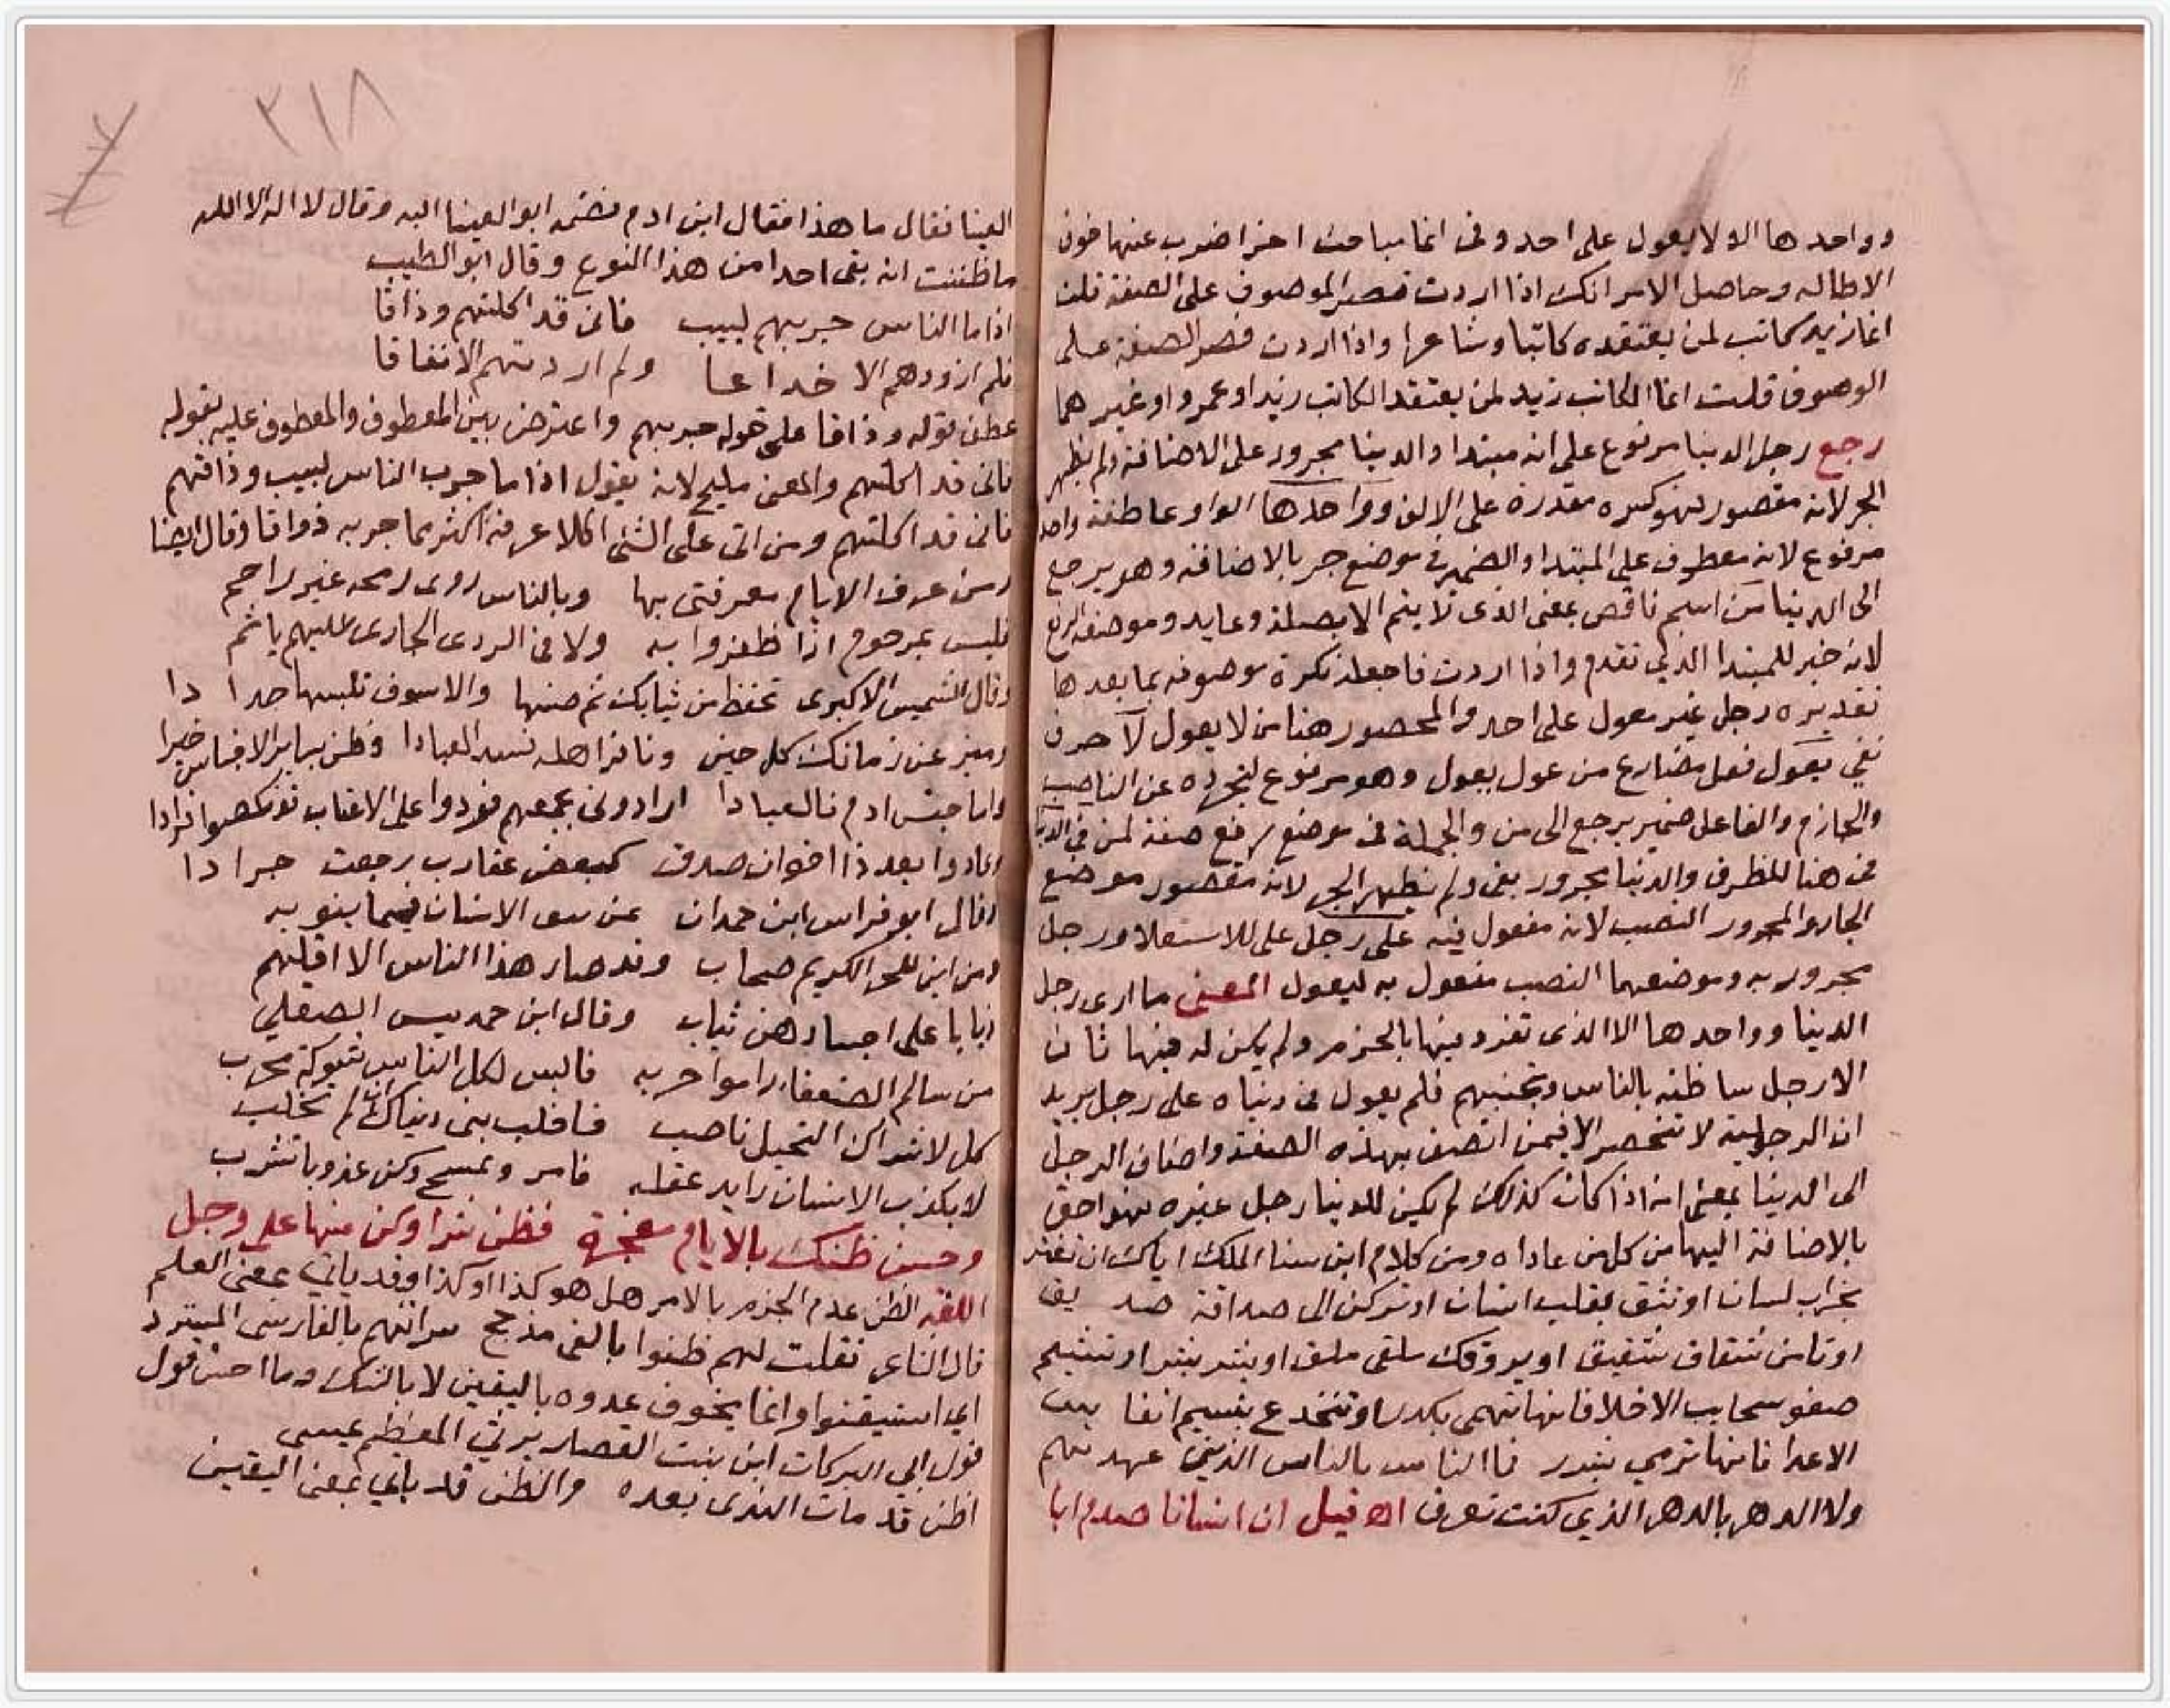 وواحدها الا لا يعول على احد وفي انما مباحث اخر اضرب عنها خوف
الاطاله وحاصل الامر انك اذا اردت قصر الموصوف على الصفة قلت
انما زيد كاتب لمن يعتقده كاتبا وشاعرا واذا اردت قصر الصفة على
الموصوف قلت انما الكاتب زيد لمن يعتقد الكاتب زيدا وعمرو او غيرهما
رجع رجل الدنيا مرفوع على انه مبتدا والدنيا مجرور على الاضافة ولم يظهر
الجر لانه مقصور فهو كسره مقدرة على الالف وواحدها الواو عاطفة واحد
مرفوع لانه معطوف على المبتدا والضمير في موضع جر بالاضافة وهو يرجع
الى الدنيا من اسم ناقص بمعنى الذى لا يتم الا بصلة وعايد وموضعه الرفع
لانه خبر للمبتدا الذي تقدم واذا اردت فاجعله نكرة موصوفه بما بعدها
تقديره رجل غير معول على احد والمحصور هنا من لا يعول لا حرف
نفي يعول فعل مضارع من عول يعول وهو مرفوع لتجرده عن الناصب
والجازم والفاعل ضمير يرجع الى من والجملة في موضع رفع صفة لمن في الدنيا
في هنا للظرف والدنيا مجرور بفى ولم يظهر الجر لانه مقصور موضع
الجار والمجرور النصب لانه مفعول فيه على رجل على للاستعلا ورجل
مجرور به وموضعهما النصب مفعول به ليعول المعنى ما ارى رجل
الدنيا وواحدها الا الذى تفرد فيها بالحزم ولم يكن له فيها ثان
الا رجل ساظنه بالناس وتجنبهم فلم يعول في دنياه على رجل يريد
ان الرجولية لا تنحصر الا فيمن اتصف بهذه الصفة واضاف الرجل
الى الدنيا بمعنى انه اذا كان كذلك لم يكن للدنيا رجل غيره فهو احق
بالاضافة اليها من كل من عاداه ومن كلام ابن سنا الملك اياك ان تغتر
بخراب لسان او تثق بقلب انسان او تركن الى صداقة صديق
او تامن شقاق شقيق او يروقك ملقى ملق او بشر بشر او تشيم
صفو سحايب الاخلا فانها تهمى بكدر او تنخدع بنسيم انفاس
الاعدا فانها ترمي بشرر فما الناس بالناس الذين عهدتهم
ولا الدهر بالدهر الذي كنت تعرف اه قيل ان انسانا صدم ابا
٢١٨
العينا فقال ما هذا فقال ابن ادم فضمه ابو العينا اليه وقال لا اله الا الله
ما ظننت انه بقى احدا من هذا النوع وقال ابو الطيب
اذا ما الناس جربهم لبيب فانى قد اكلتهم وذاقا
فلم ار ودهم الا خداعا ولم ار دينهم الا نفاقا
عطف قوله وذاقا على قوله جربهم واعترض بين المعطوف والمعطوف عليه بقوله
فانى قد اكلتهم والمعنى مليح لانه يقول اذا ما جرب الناس لبيب وذاقهم
فانى قد اكلتهم ومن اتى على الشى اكلا عرفه اكثر مما جربه ذواقا وقال ايضا
ومن عرف الايام معرفتى بها وبالناس روى رمحه غير راحم
فليس بمرحوم اذا ظفروا به ولا فى الردى الجارى عليهم باثم
وقال الشميس الاكبرى تحفظ من ثيابك ثم صنها والا سوف تلبسها حدادا
وميز عن زمانك كل حين ونافر اهله تسد العبادا وظن بساير الاجناس خيرا
واما جنس ادم فالعبادا ارادونى بجمعهم فردوا على الاعقاب نكصوا فرادا
وعادوا بعد ذا اخوان صدق كبعض عقارب رجعت جرادا
وقال ابو فراس ابن حمدان بمن يثق الانسان فيما ينوبه
ومن اين للحر الكريم صحاب وقد صار هذا الناس الا اقلهم
ذيابا على اجسادهن ثياب وقال ابن حمديس الصقلي
من سالم الضعفاء راموا حربه فالبس لكل الناس شوكة محرب
كل لاشراك التحيل ناصب فاخلب بنى دنياك ان لم تغلب
لا يكذب الانسان رايد عقله فامر وتمسح وكن عذوبا تشرب
وحسن ظنك بالايام معجزة فظن شرا وكن منها على وجل
اللغه الظن عدم الجزم بالامر هل هو كذا او كذا وقد ياتي بمعنى العلم
قال الشاعر فقلت لهم ظنوا بالفى مذحج سراتهم بالفارسى المسرد
اي استيقنوا وانما يخوف عدوه باليقين لا بالشك وما احسن قول
قول ابي البركات ابن بنت القصار يرثي المعظم عيسى
اظن قد مات الندى بعده والظن قد ياتي بمعنى اليقين